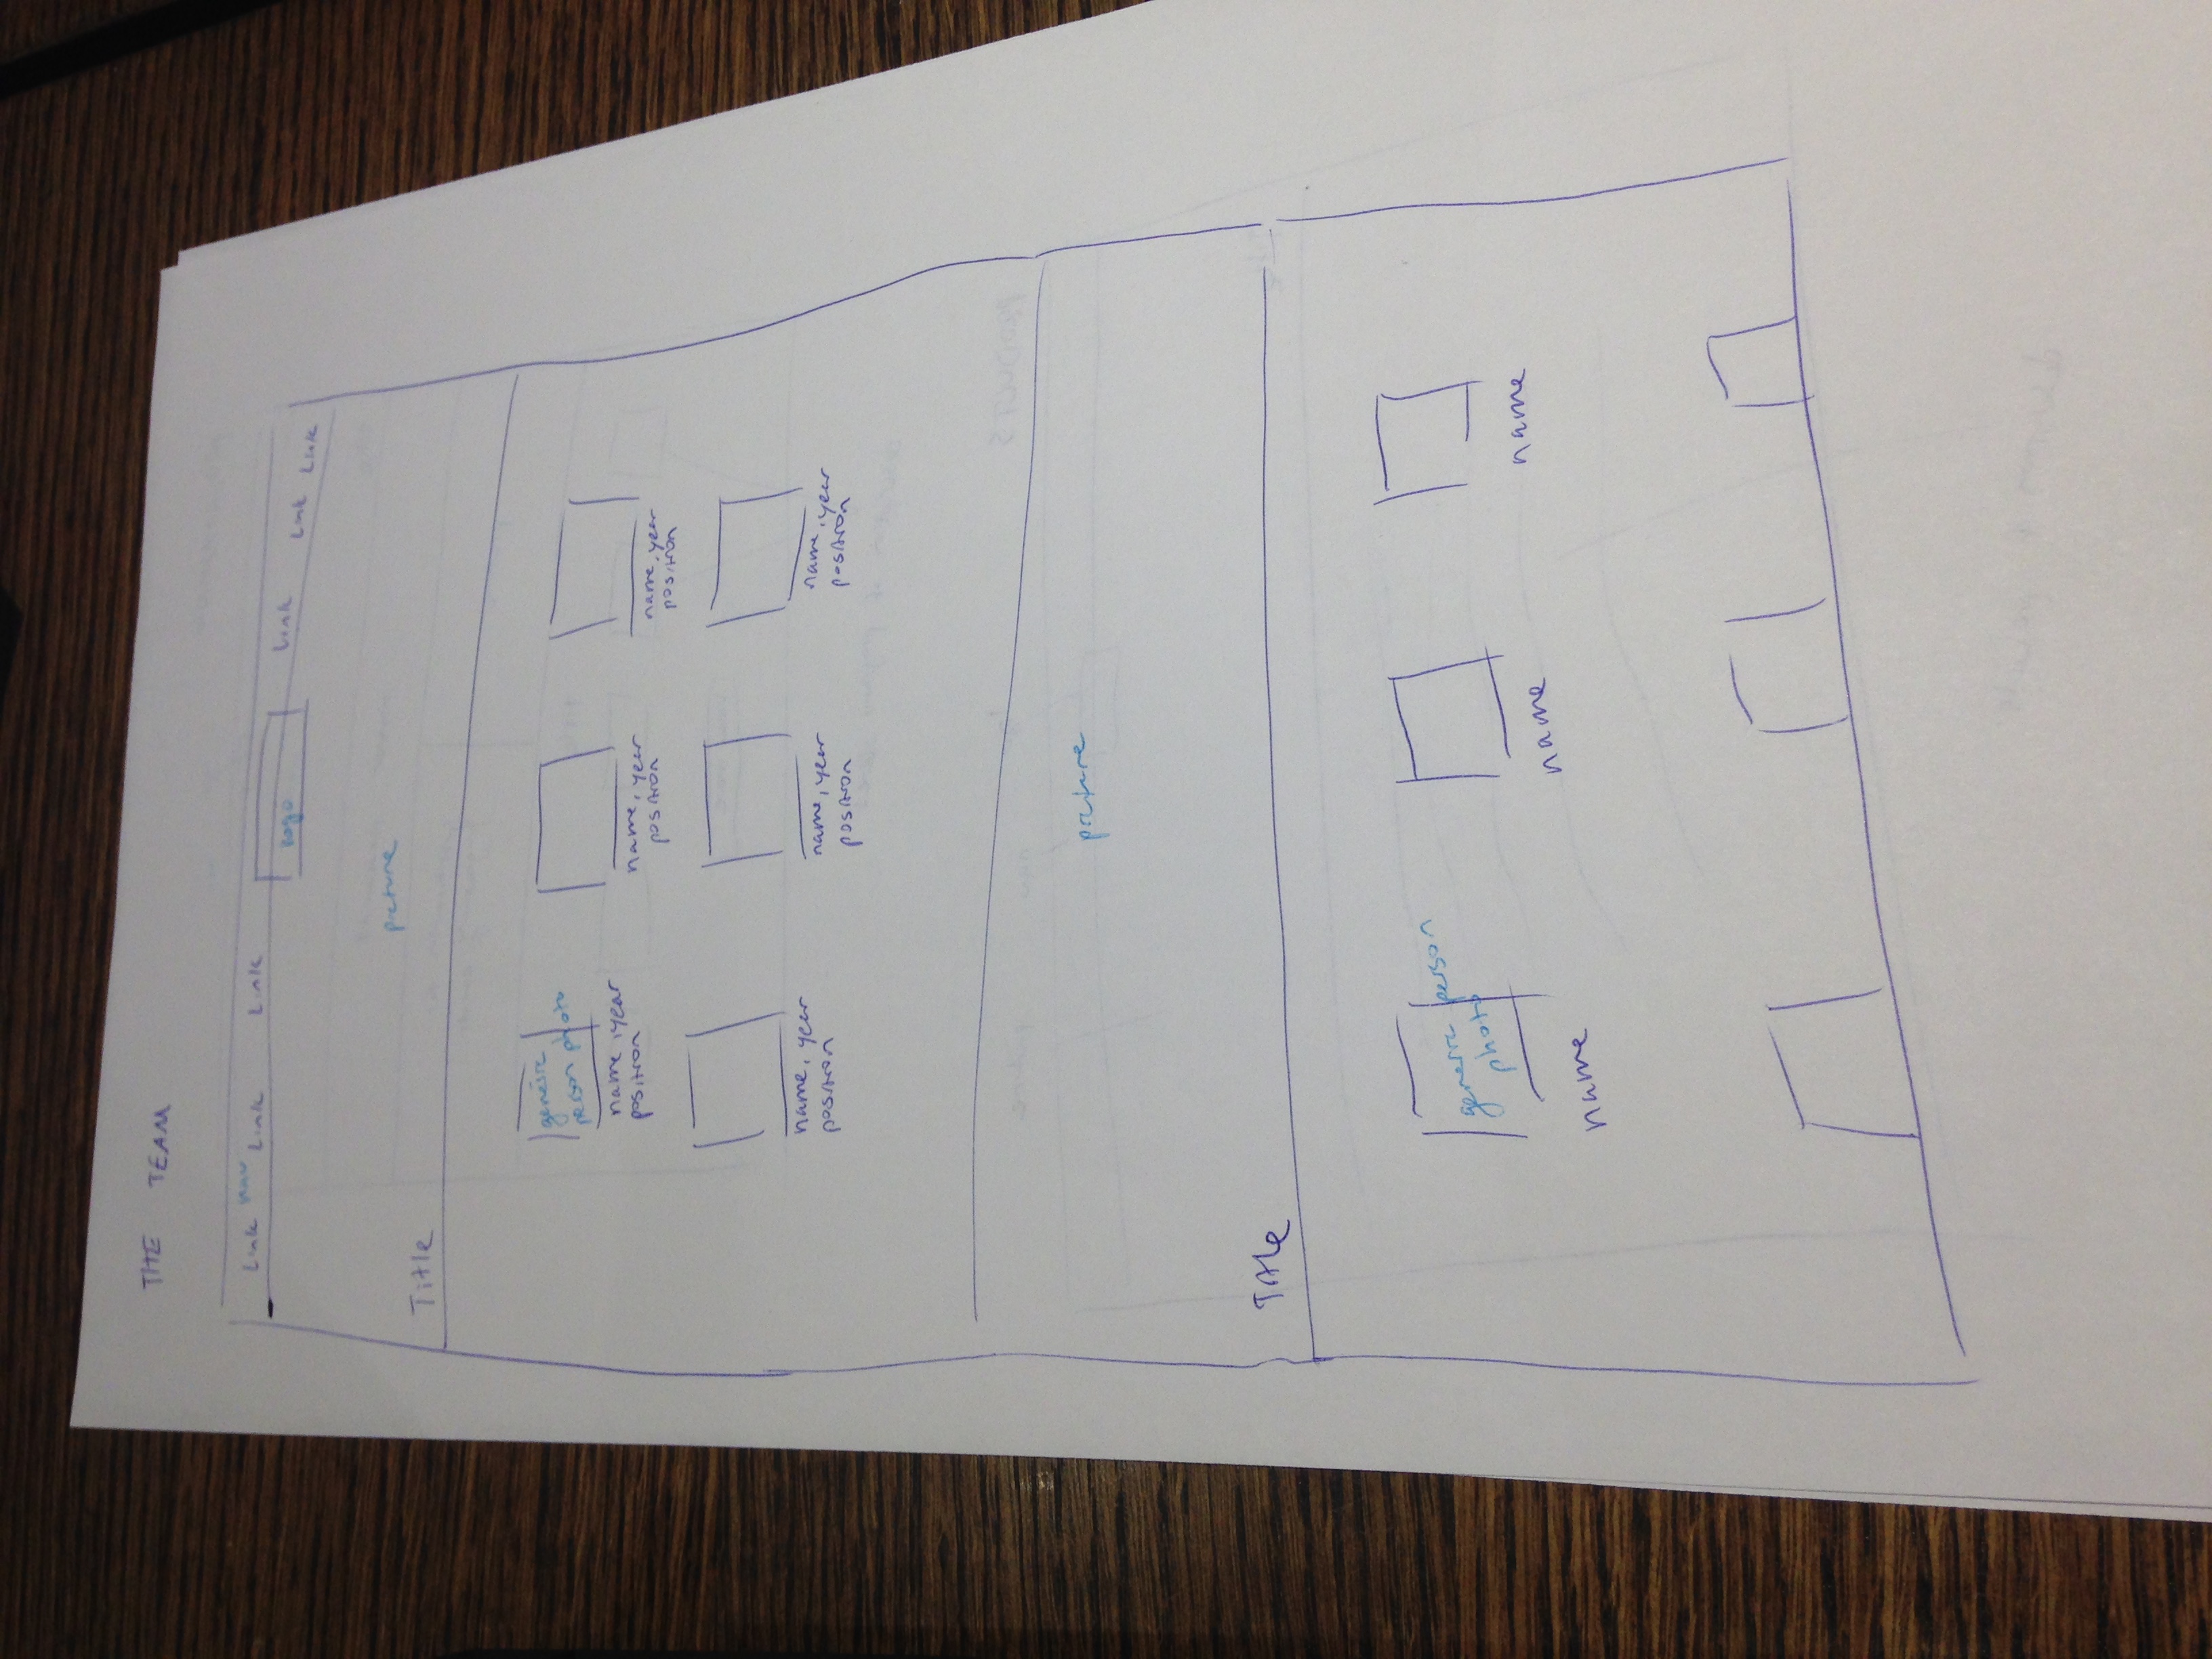 THE TEAM
Link nav Link Link logo Link Link Link
picture
Title
generic
person photo
name, year
position
name, year
position
name, year
position
name, year
position
name, year
position
name, year
position
picture
Title
generic person
photo
name
name
name
PRODUCTS